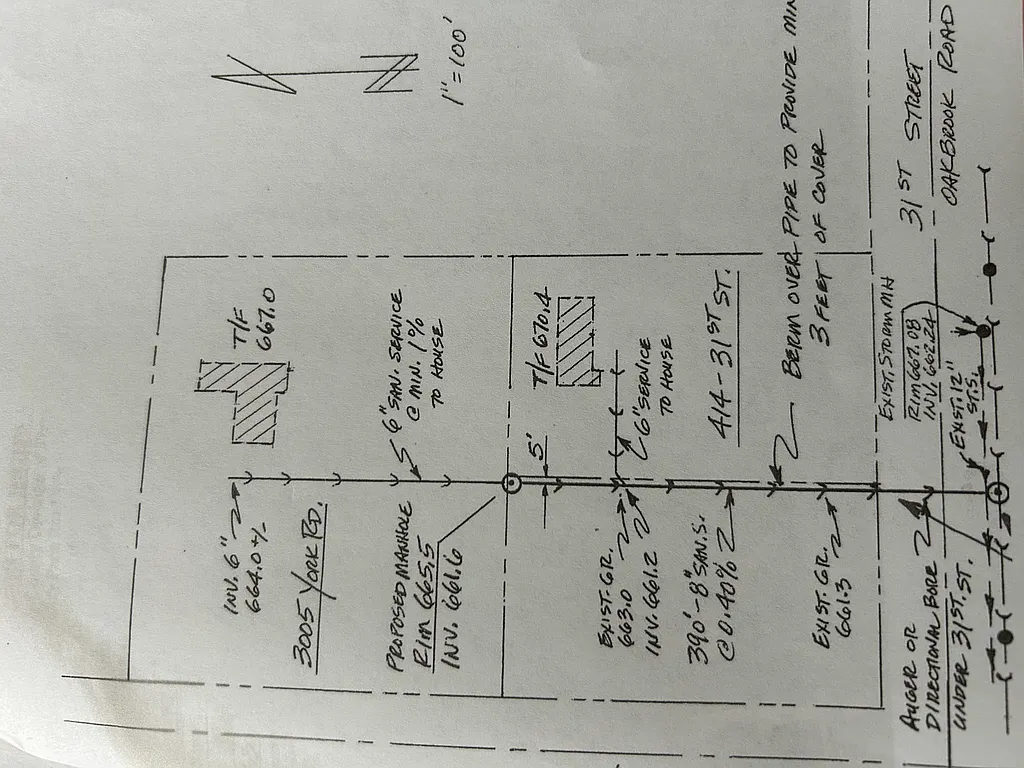 1"=100'
T/F
667.0
6" SAN. SERVICE
@ MIN. 1%
TO HOUSE
INV. 6"
664.0+/-
3005 YORK RD.
PROPOSED MANHOLE
RIM 665.5
INV. 661.6
T/F 670.4
5'
6" SERVICE
TO HOUSE
414-31ST ST.
EXIST. GR.
663.0
INV. 661.2
390'-8" SAN. S.
@ 0.40%
BERM OVER PIPE TO PROVIDE MIN
3 FEET OF COVER
EXIST. GR.
661.3
EXIST. STORM MH
RIM 667.08
INV.
EXIST. 12"
ST. S.
31ST STREET
OAKBROOK ROAD
AUGER OR
DIRECTIONAL BORE
UNDER 31ST. ST.